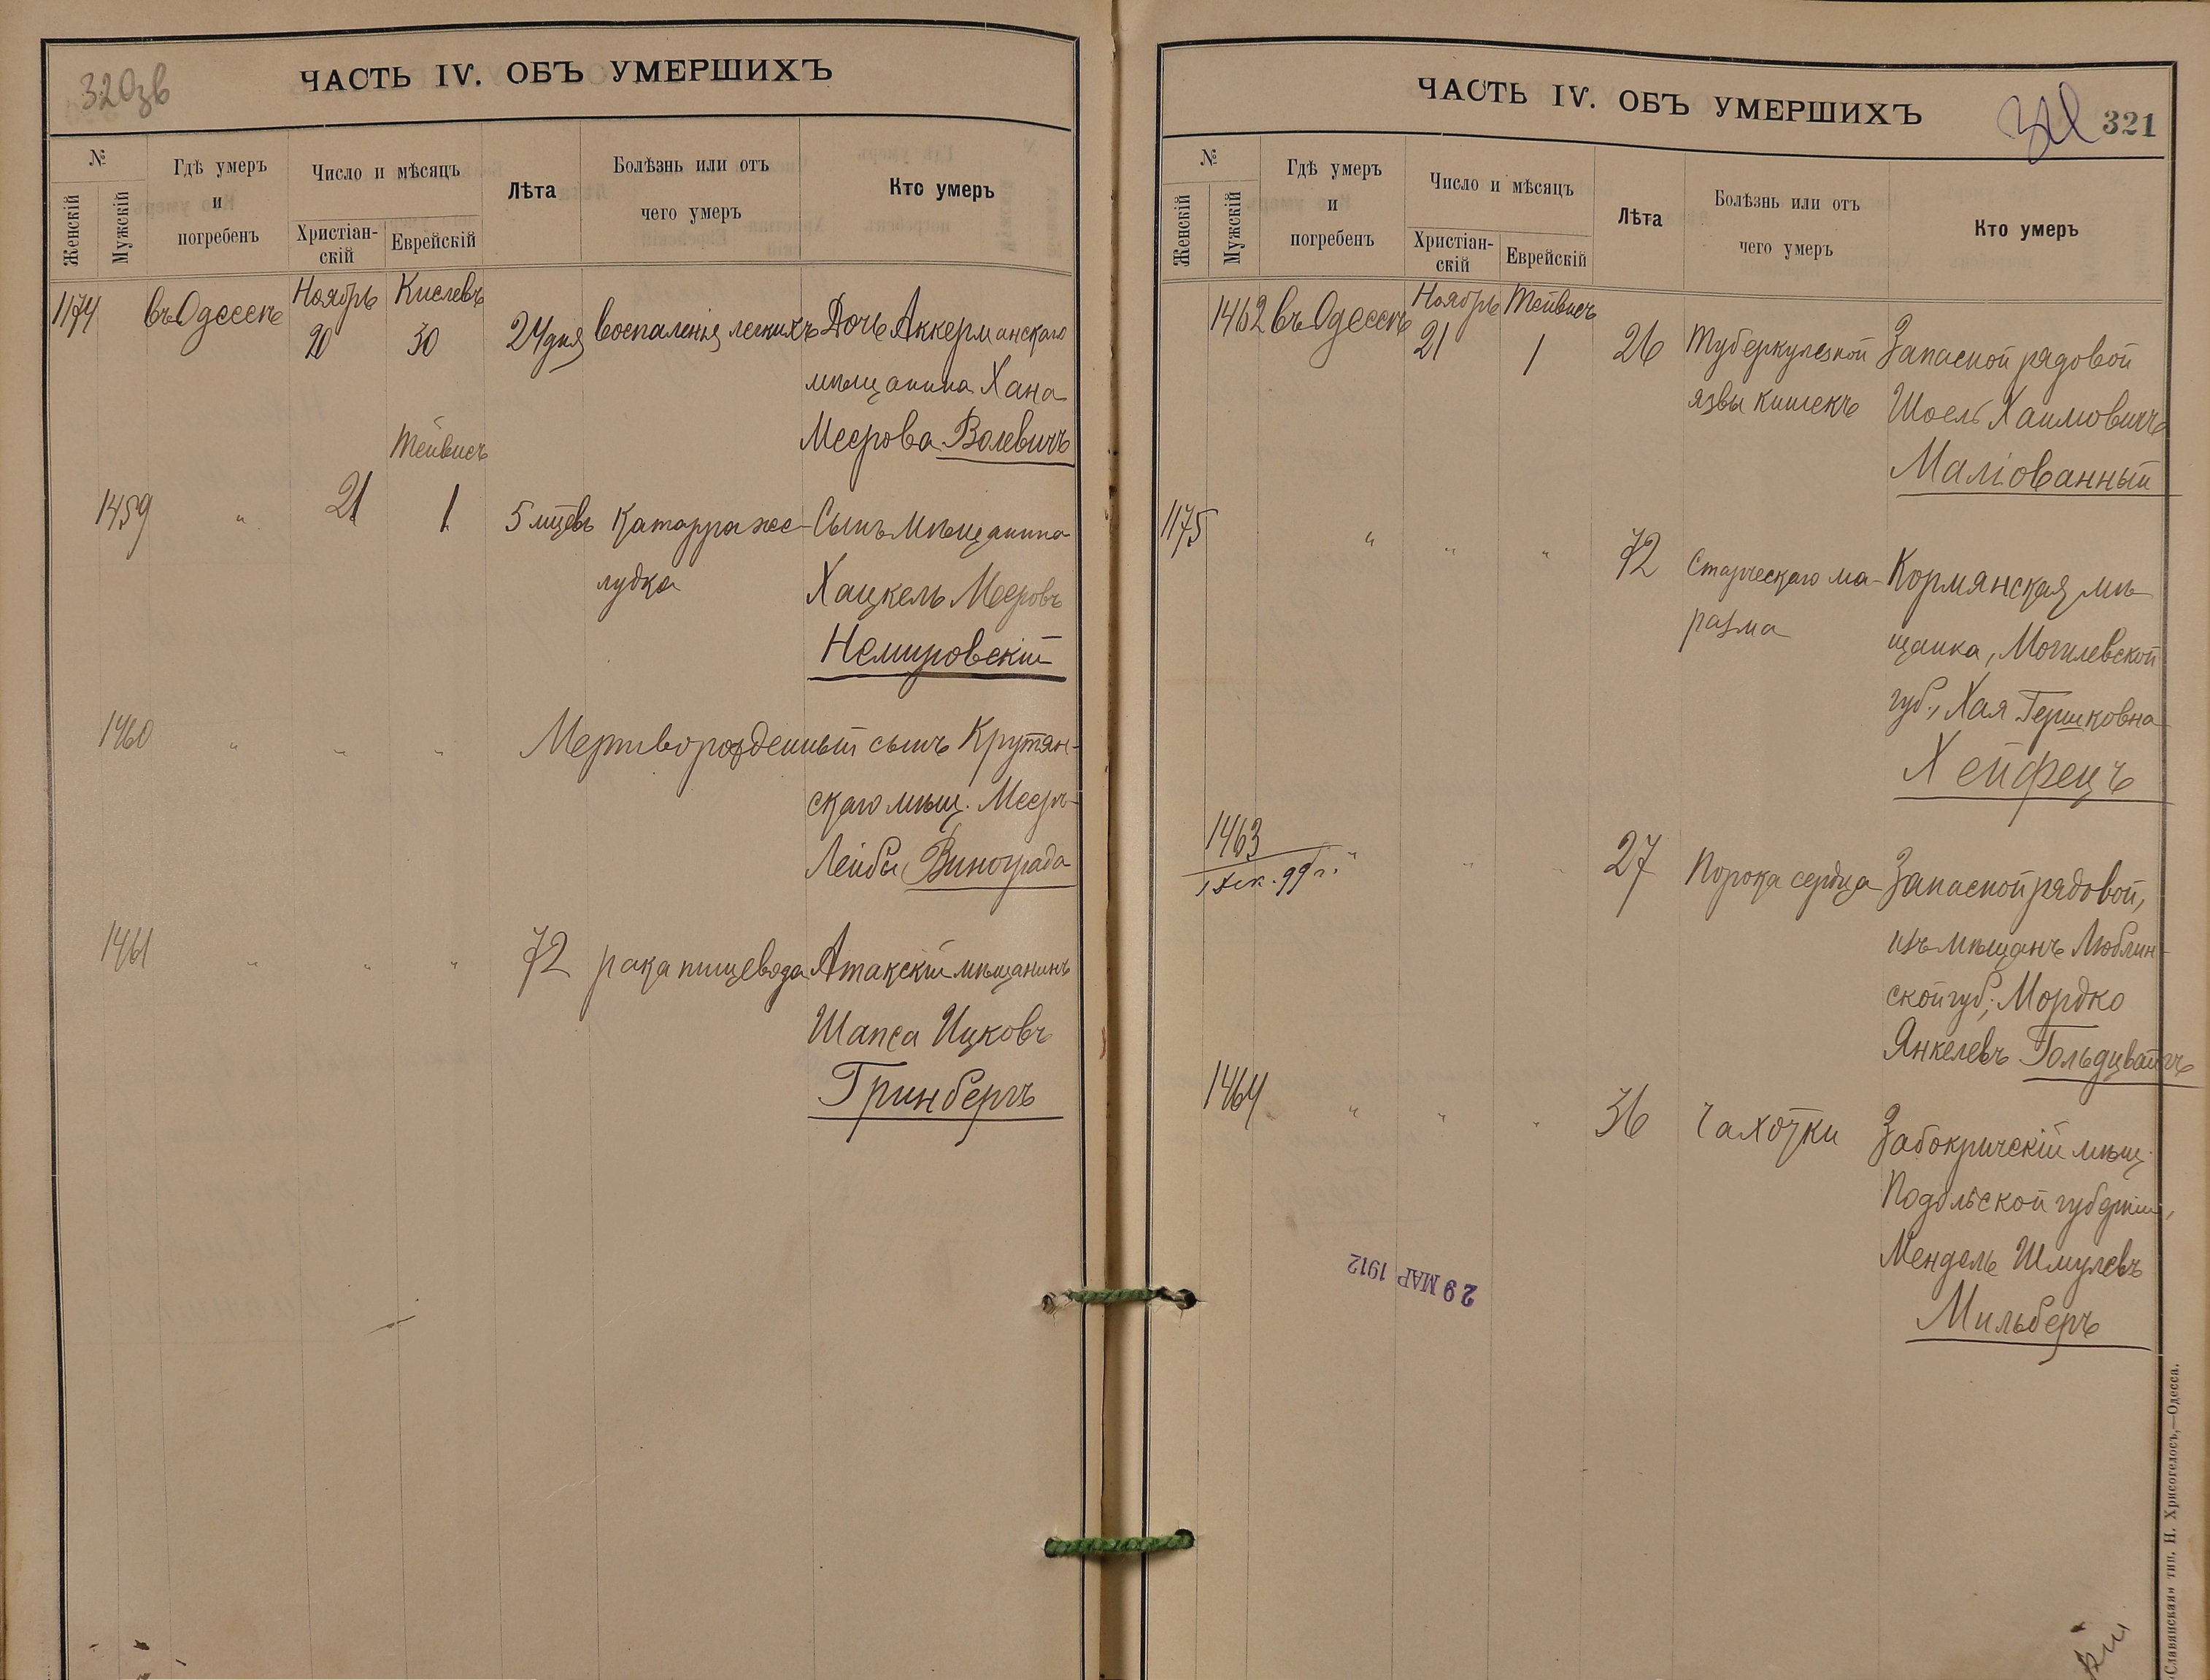 320зв
ЧАСТЬ IV. ОБЪ УМЕРШИХЪ
№
Женскій
Мужскій
Гдѣ умеръ
и
погребенъ
Число и мѣсяцъ
Христіан-
скій
Еврейскій
Лѣта
Болѣзнь или отъ
чего умеръ
Кто умеръ
1174 въ Одессѣ Ноябрь 20 Кислевъ 30 24 дня воспаленія легкихъ Дочь Аккерманскаго
мѣщанина Хана
Меерова Волевичъ
Тейвисъ
1459 " 21 1 5 мцевъ Катарра же- Сынъ мѣщанина
лудка Хацкель Мееровъ
Немировскій
1460 " " " Мертворожденный сынъ Крутян-
скаго мѣщ. Меер-
Лейбы Винограда
1461 " " " 72 рака пищевода Атакскій мѣщанинъ
Шапса Ицковъ
Гринбергъ
ЧАСТЬ IV. ОБЪ УМЕРШИХЪ
321
321
№
Женскій
Мужскій
Гдѣ умеръ
и
погребенъ
Число и мѣсяцъ
Христіан-
скій
Еврейскій
Лѣта
Болѣзнь или отъ
чего умеръ
Кто умеръ
1462 въ Одессѣ Ноябрь 21 Тейвисъ 1 26 Туберкулезной Запасной рядовой
язвы кишекъ Шоель Хаимовичъ
Маліованный
1175 " " " 72 Старческаго ма- Кормянская мѣ-
разма щанка, Могилевской
губ., Хая Гершковна
Хейфецъ
1463 " " " 27 Порока сердца Запасной рядовой,
1 дек. 99 г.
изъ мѣщанъ Люблин-
ской губ., Мордко
Янкелевъ Гольдцвайгъ
1464 " " " 36 Чахотки Забокричскій мѣщ.
Подольской губерніи,
Мендель Шмулевъ
Мильберъ
29 МАР 1912
«Славянская» тип. Н. Хрисогелосъ,—Одесса.